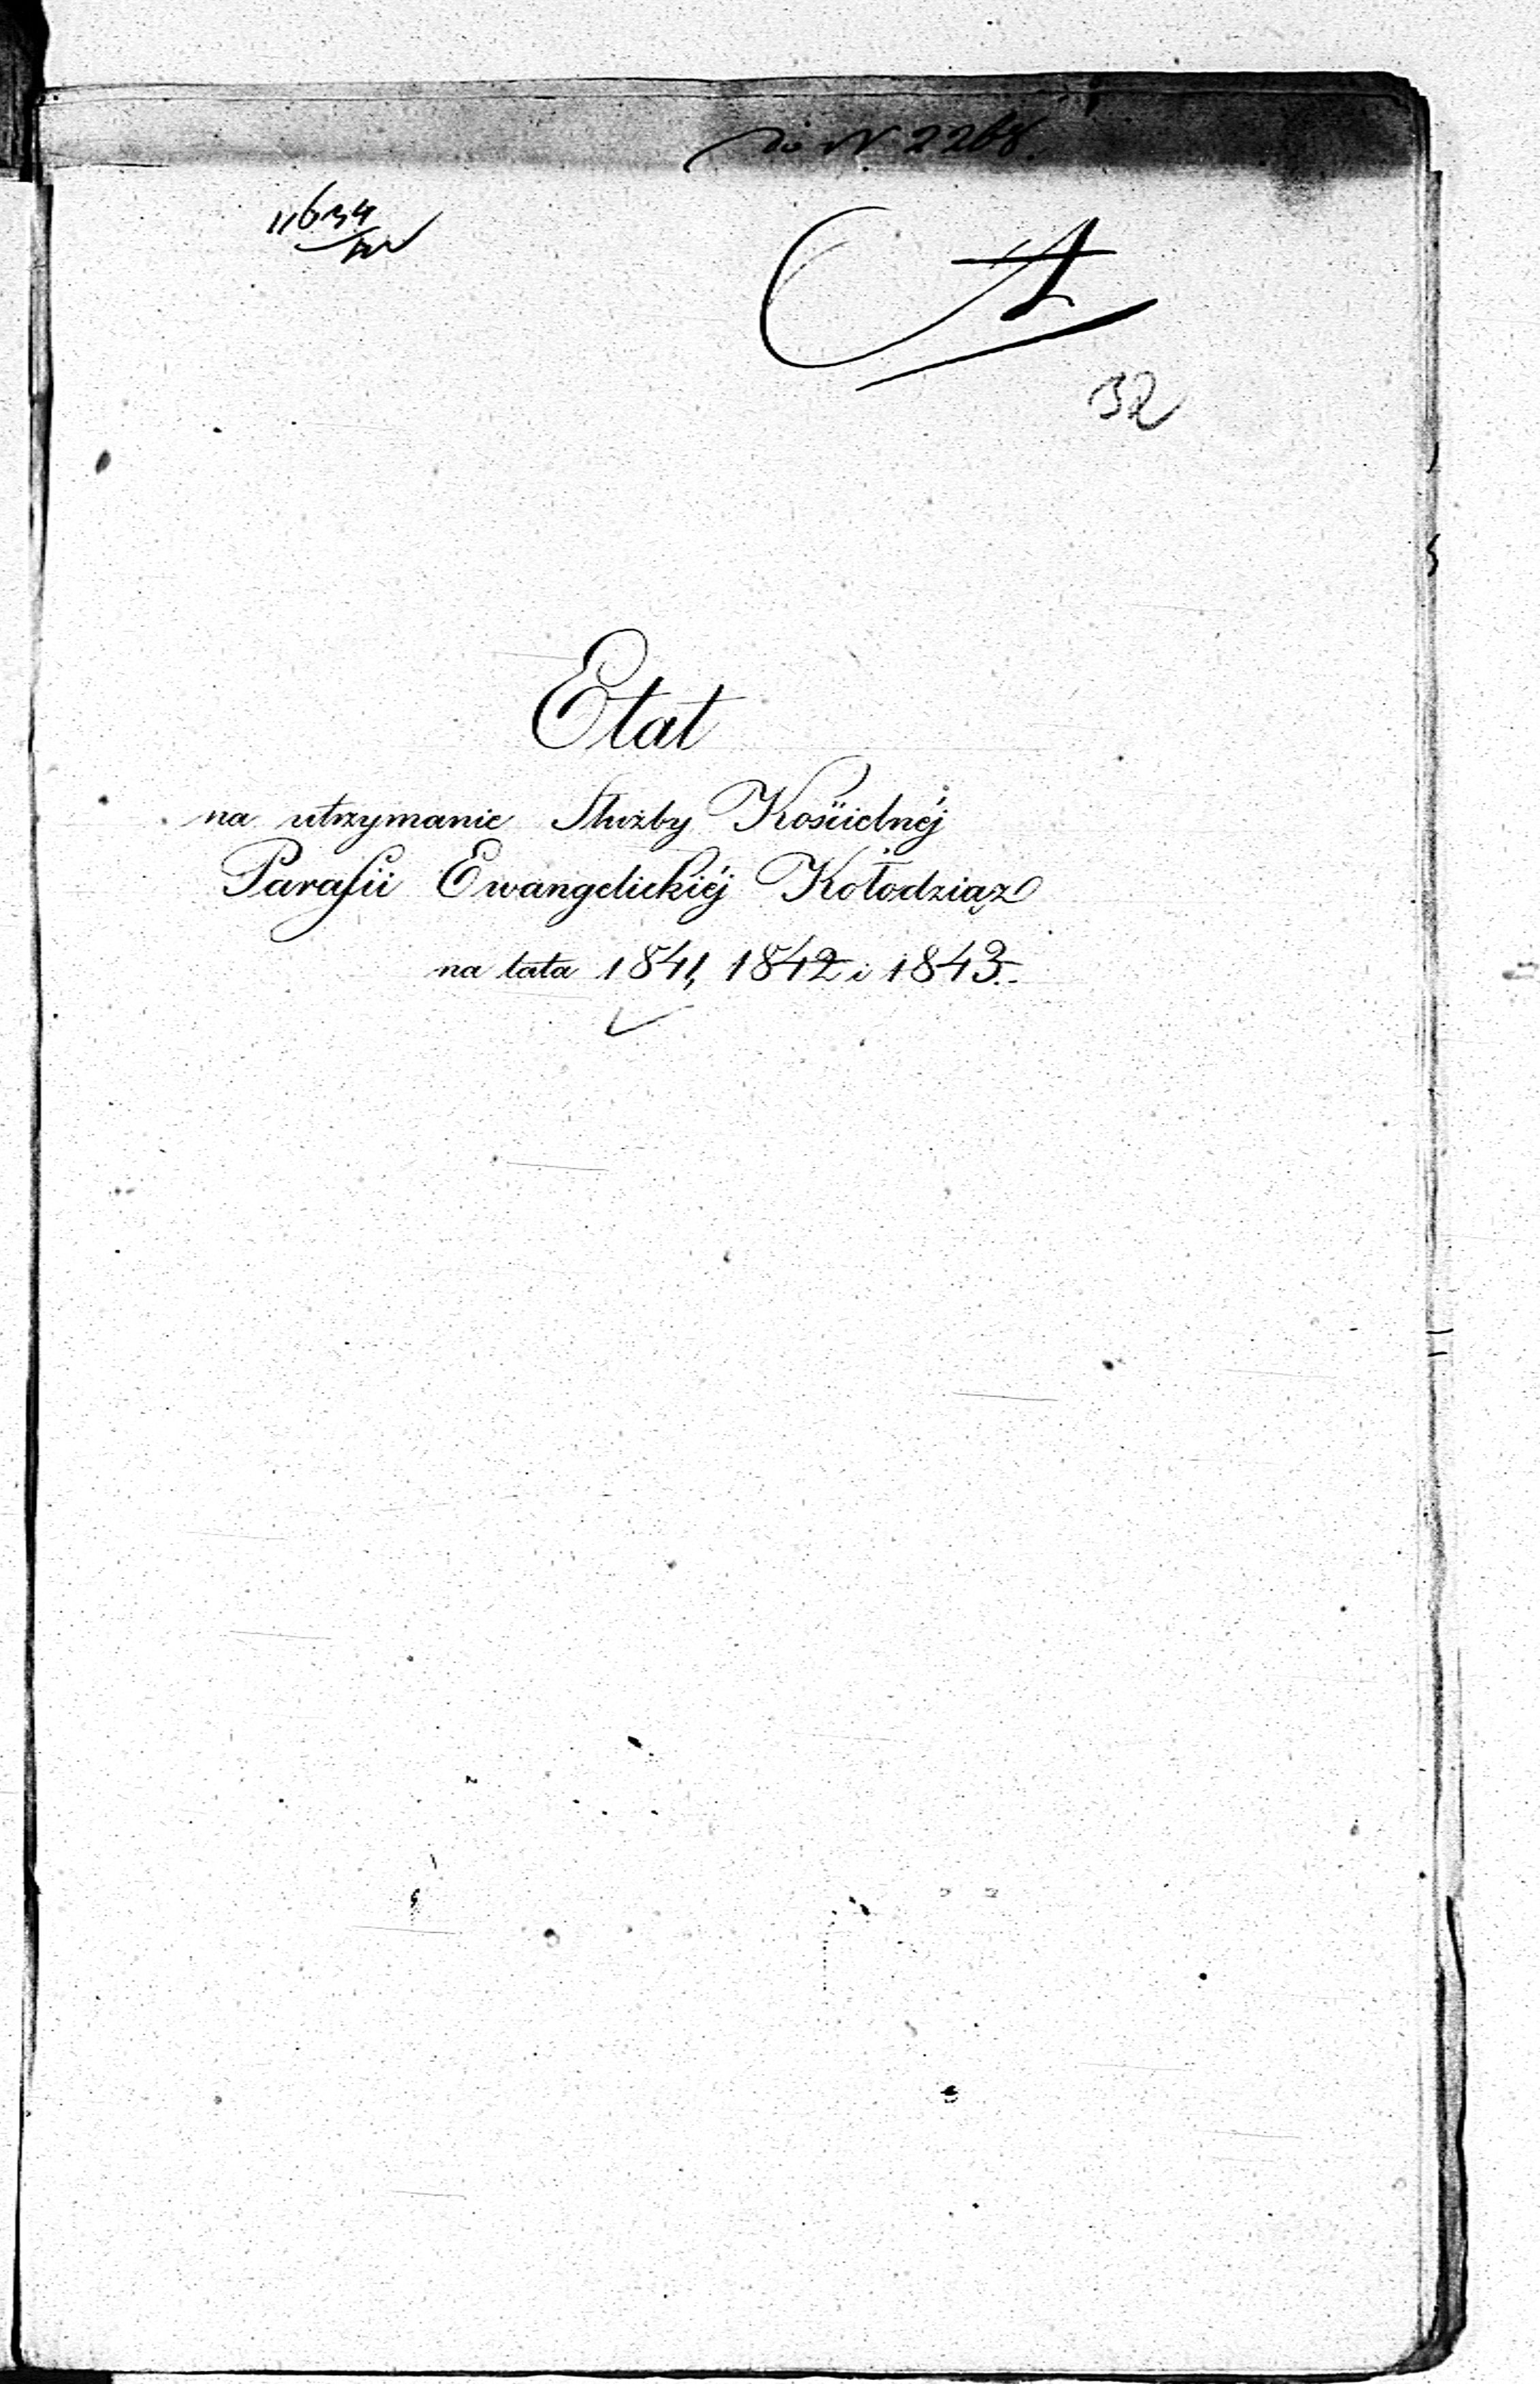 do N 2268.
11634
A
32
Etat
na utrzymanie Służby Kościelnéj
Parafii Ewangelickiéj Kołodziąż
na lata 1841, 1842 i 1843.